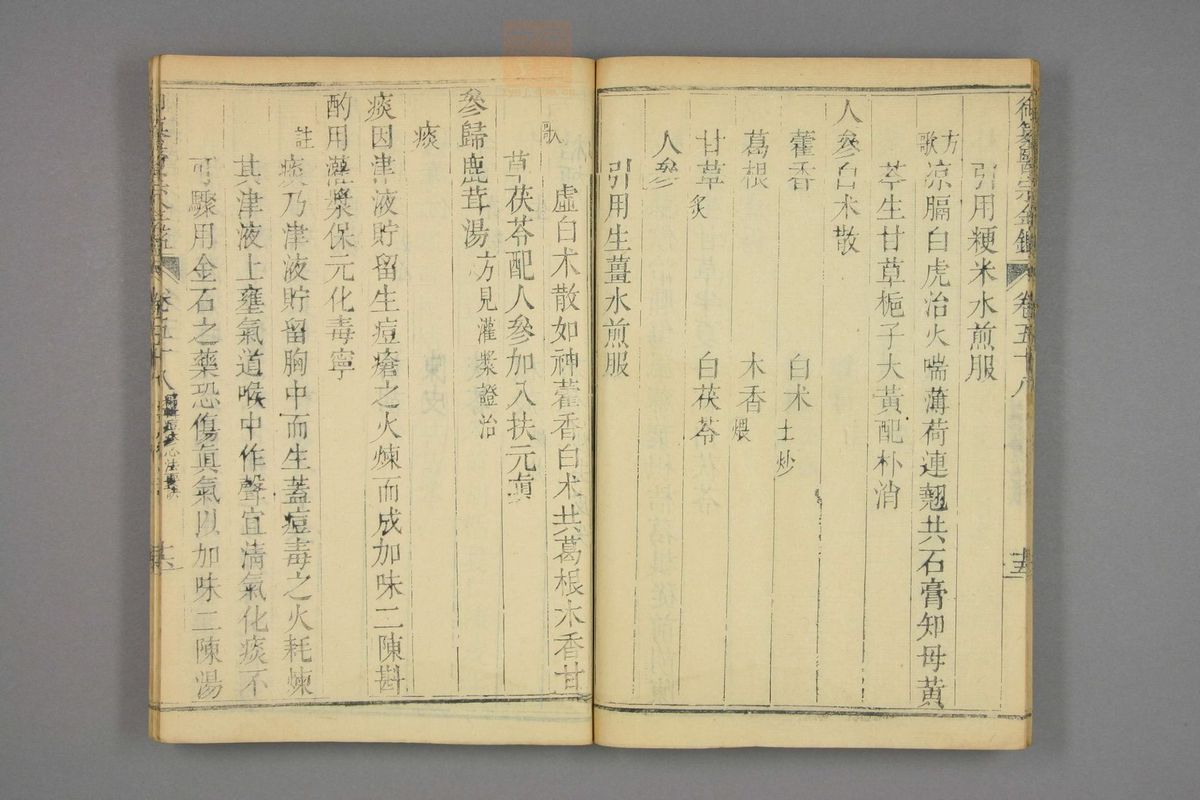 御纂醫宗金鑑 卷五十八 十五
引用粳米水煎服
方歌 凉膈白虎治火喘薄荷連翹共石膏知母黃
芩生甘草梔子大黃配朴消
人參白朮散
藿香 白朮土炒
葛根 木香煨
甘草炙 白茯苓
人參
引用生薑水煎服
歌 虛白朮散如神藿香白朮共葛根木香甘
草茯苓配人參加入扶元眞
參歸鹿茸湯方見灌漿證治
痰
痰因津液貯留生痘瘡之火煉而成加味二陳斟
酌用灌漿保元化毒寧
註 痰乃津液貯留胸中而生蓋痘毒之火耗煉
其津液上壅氣道喉中作聲宜清氣化痰不
可驟用金石之藥恐傷眞氣以加味二陳湯
卷五十八